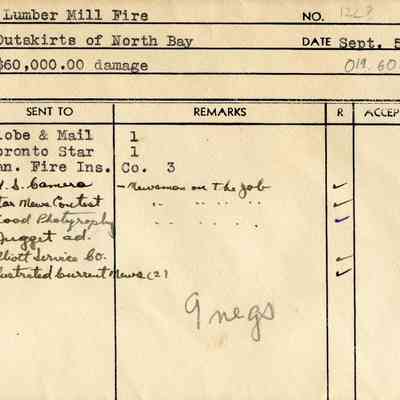 Lumber Mill Fire NO. 1228
Outskirts of North Bay DATE Sept. 5
$60,000.00 damage 019.60
SENT TO REMARKS R ACCEP
lobe & Mail 1
oronto Star 1
an. Fire Ins. Co. 3
U.S. Camera - Newsman on The Job
tar News Contest " " " "
Good Photography " " " "
Nugget ad.
lliott Service Co.
llustrated Current News (2)
9 negs